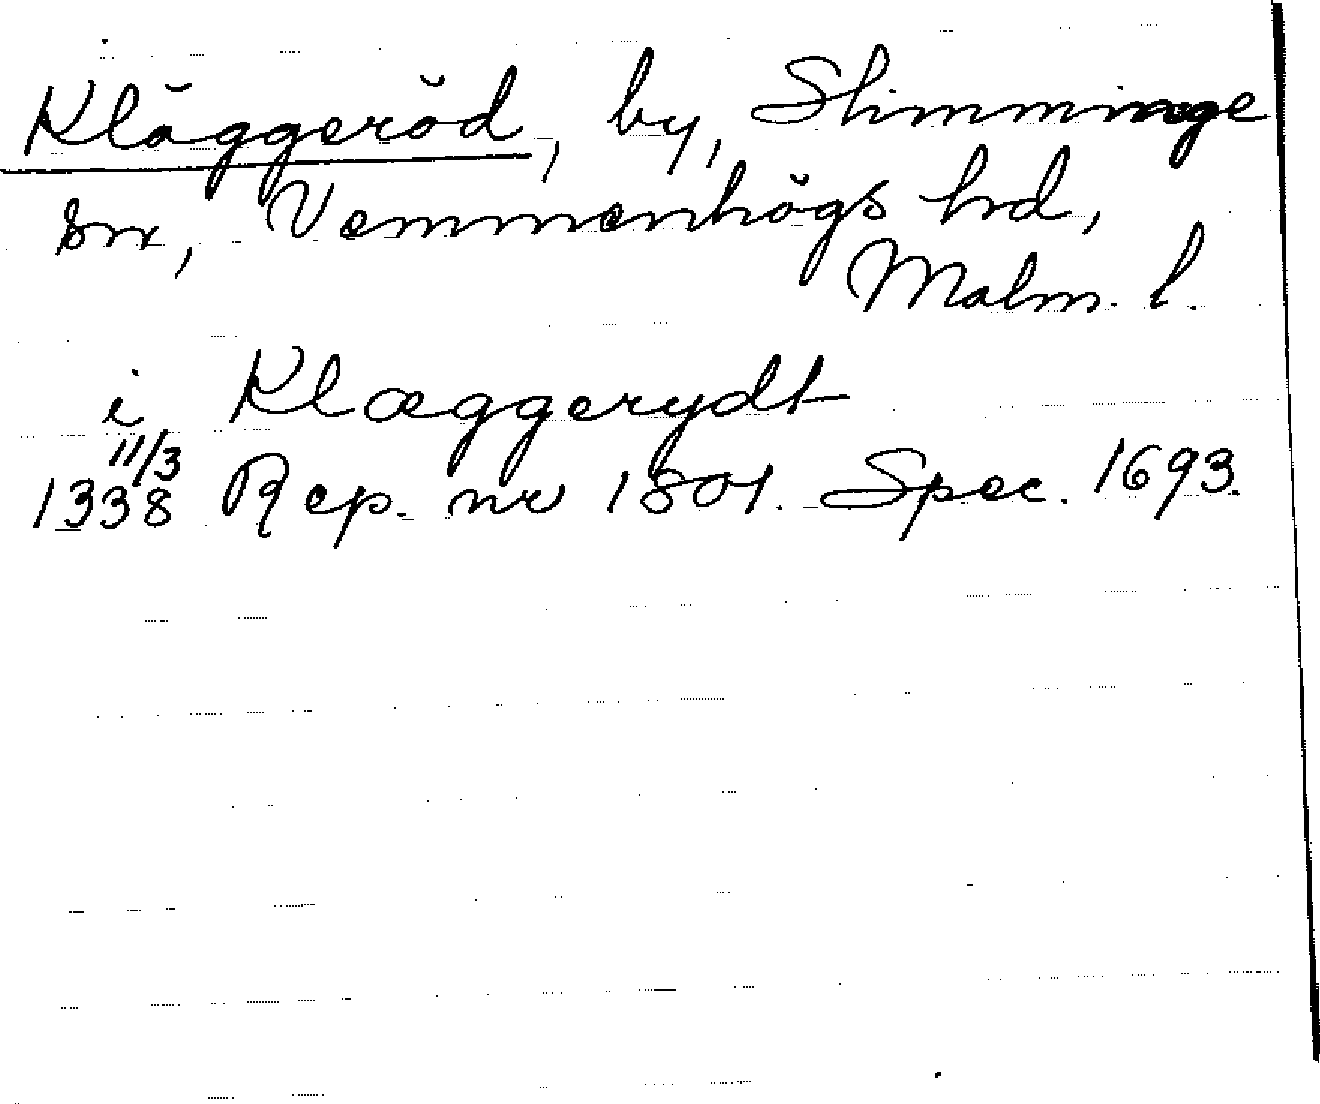 Kläggeröd, by, Slimminge
sn, Vemmenhögs hrd,
Malm. l.
i Klæggerydt
11/3
1338 Rep. nr 1801. Spec. 1693.